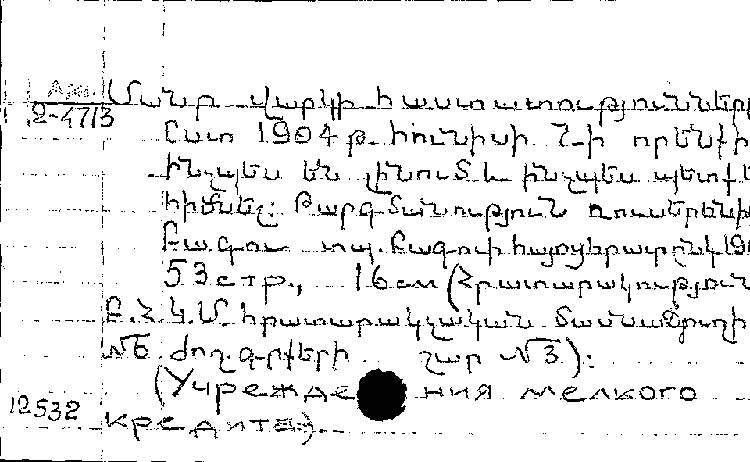 Арм. Մանր վարկի հաստատությունները
2-4713
Ըստ 1904 թ. հունիսի 7-ի որենքի
ինչպես են լինում և ինչպես պետք է
հիմնել: Թարգմանություն ռուսերենից
Բագու տպ. Բագուի հայոց 190
53 стр., 16 см (Հրատարակություն
Բ.Հ.Կ.Մ. հրատարակչական մասնաժողովի
№6. ժող. գրքերի շար №3):
(Учреждения мелкого
12532 кредита).